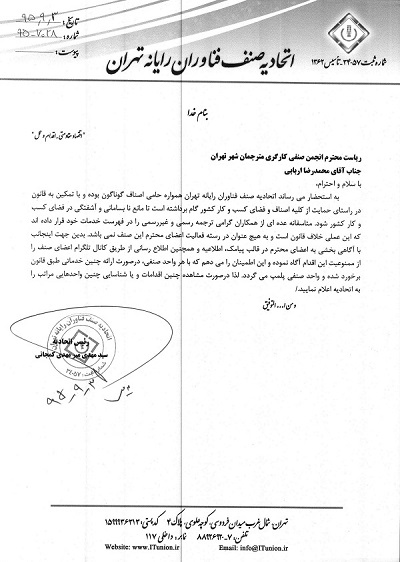 تاریخ: ۹۵,۹,۳
شماره: ۹۵-۷۰۲۸
پیوست:
اتحادیه صنف فناوران رایانه تهران
شماره ثبت ۳۴۰۵۷-تأسیس ۱۳۶۲
بنام خدا
«اقتصاد مقاومتی، اقدام و عمل»
ریاست محترم انجمن صنفی کارگری مترجمان شهر تهران
جناب آقای محمدرضا اربابی
با سلام و احترام،
به استحضار می رساند اتحادیه صنف فناوران رایانه تهران همواره حامی اصناف گوناگون بوده و با تمکین به قانون
در راستای حمایت از کلیه اصناف و فضای کسب و کار کشور گام برداشته است تا مانع نا بسامانی و آشفتگی در فضای کسب
و کار کشور شود. متاسفانه عده ای از همکاران گرامی ترجمه رسمی و غیررسمی را در فهرست خدمات خود قرار داده اند
که این عملی خلاف قانون است و به هیچ عنوان در رسته فعالیت اعضای محترم این صنف نمی باشد. بدین جهت اینجانب
با آگاهی بخشی به اعضای محترم در قالب پیامک، اطلاعیه و همچنین اطلاع رسانی از طریق کانال تلگرام اعضای صنف را
از ممنوعیت این اقدام آگاه نموده و این اطمینان را می دهم که با هر واحد صنفی، درصورت ارائه چنین خدماتی طبق قانون
برخورد شده و واحد صنفی پلمپ می گردد. لذا درصورت مشاهده چنین اقدامات و یا شناسایی چنین واحدهایی مراتب را
به اتحادیه اعلام نمایید./
و من ا... التوفیق
اتحادیه صنف فناوران رایانه تهران
رئیس اتحادیه
سید مهدی میرمهدی کمجانی
شماره ثبت: ۳۴۰۵۷
۹۵,۹,۳
تهران، شمال غرب میدان فردوسی، کوچه علوی، پلاک ۴ کدپستی: ۱۵۹۹۹۶۳۶۱۳
تلفن: ۷-۸۸۹۲۶۹۲۰ نمابر: داخلی ۱۱۷
Website: www.ITunion.ir Email: info@ITunion.ir